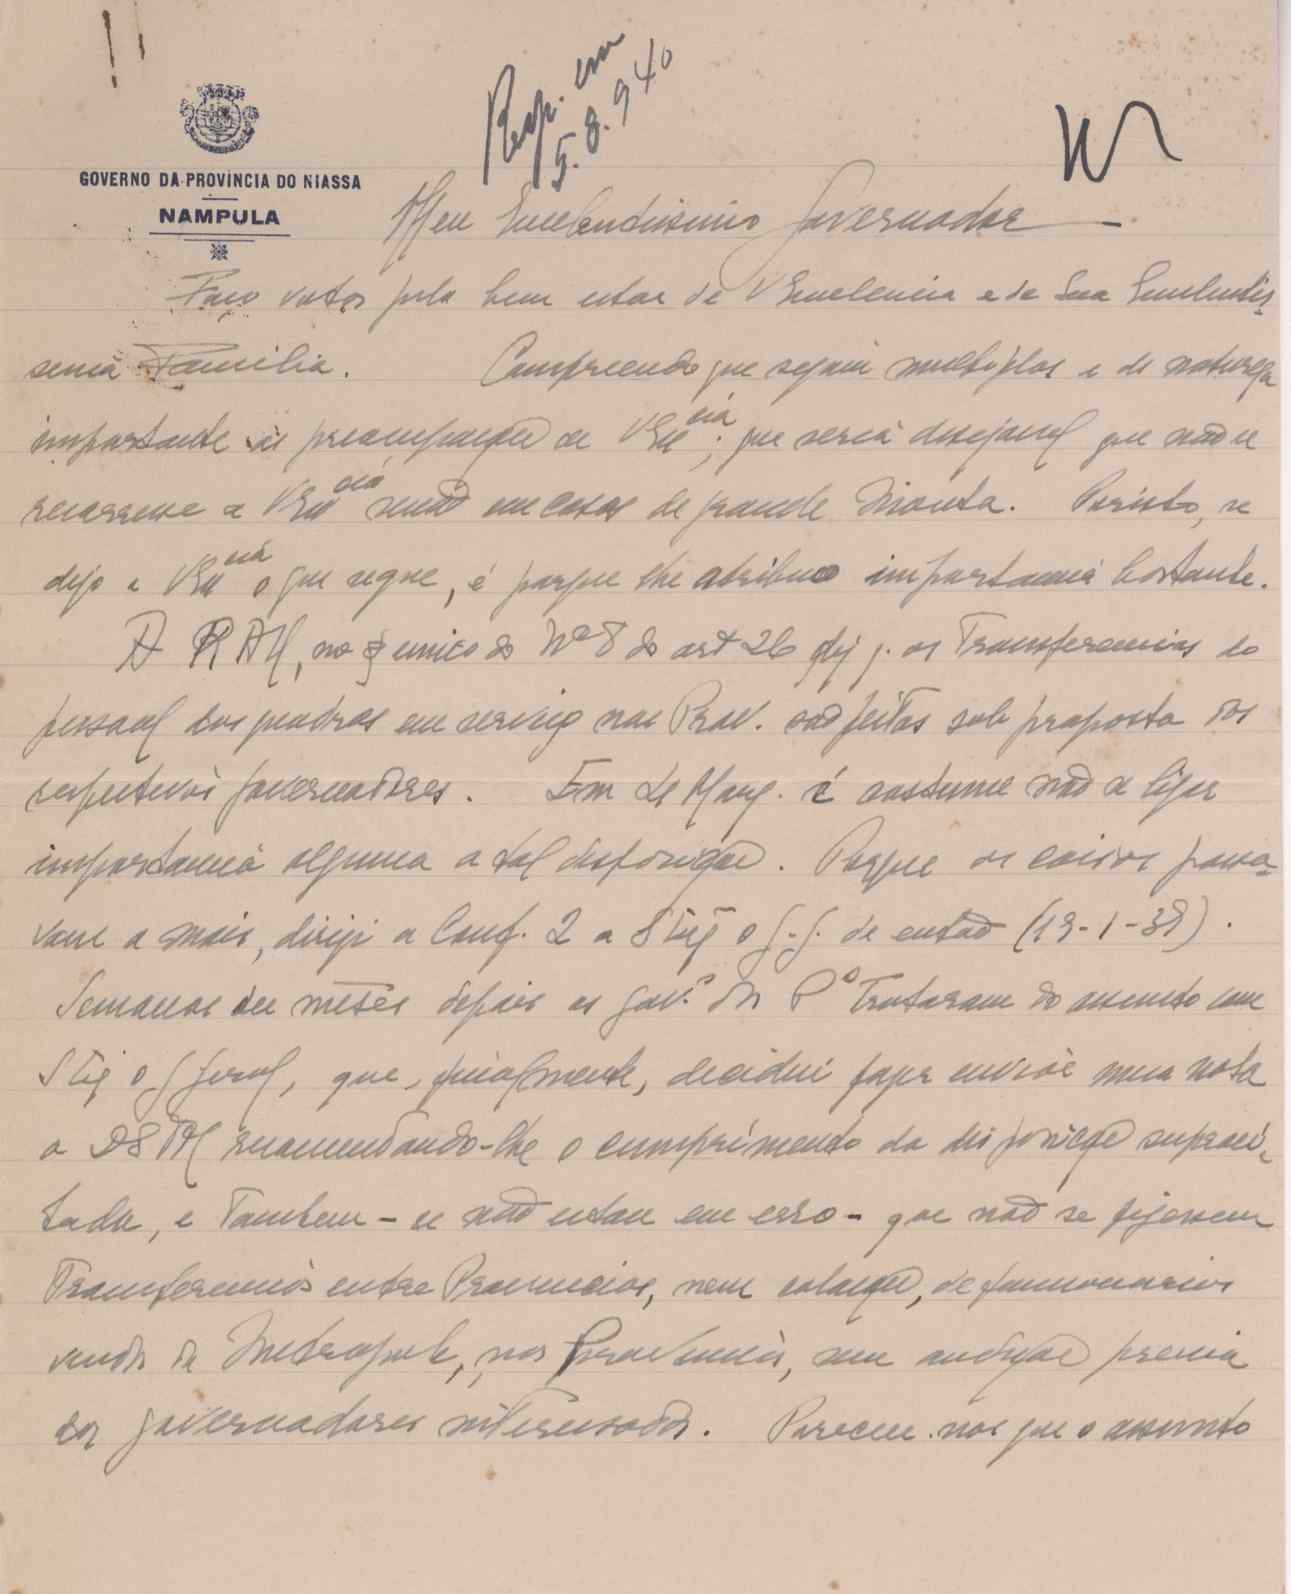 Resp. em
5.8.940
GOVERNO DA PROVÍNCIA DO NIASSA
NAMPULA
Meu Excelentissimo Governador
Faço votos pelo bem estar de VExcelencia e de Sua Excelentis-
sima Familia. Compreendo que sejam multiplas e de natureza
importante as preocupações de VExcia; que seria desejavel que não se
recorresse a VExcia senão em casos de grande monta. Por isto, se
digo a VExcia o que segue, é porque lhe atribuo importancia bastante.
A RAU, no § unico do Nº 8 do art 26 diz q. as Transferencias do
pessoal dos quadros em serviço nas Prov. são feitas sob proposta dos
respectivos governadores. Em Moç. é costume não se ligar
importancia alguma a tal disposição. Porque as coisas passa-
vam a mais, dirigi a Conf. 2 a S Exª o G.G. de então (19-1-38).
Semanas ou mêses depois os gov.es de Pª trataram do assunto com
S Exª o G Geral, que, finalmente, decidiu fazer enviar uma nota
a recomendando-lhe o cumprimento da disposição supraci-
tada, e Tambem - se não estou em erro - que não se fizessem
Transferencias entre Provincias, nem colocação, de funcionarios
vindos da Metropole, nas Provincias, sem audição previa
dos governadores interessados. Parecem-nos que o assunto